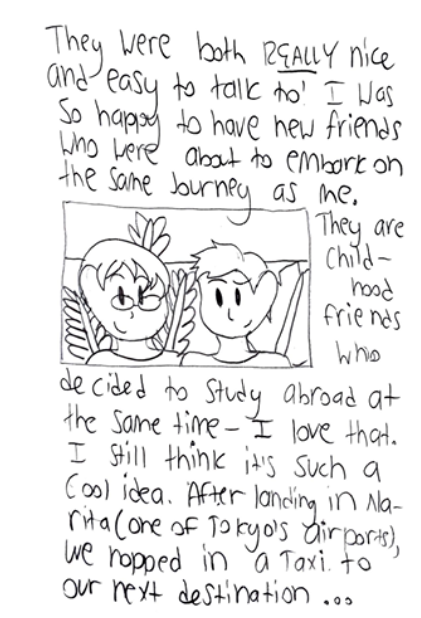 They were both REALLY nice
and easy to talk to! I was
so happy to have new friends
who were about to embark on
the same journey as me.
They are
child-
hood
friends
who
decided to study abroad at
the same time - I love that.
I still think it's such a
cool idea. After landing in Na-
rita (one of Tokyo's airports),
we hopped in a taxi to
our next destination ...